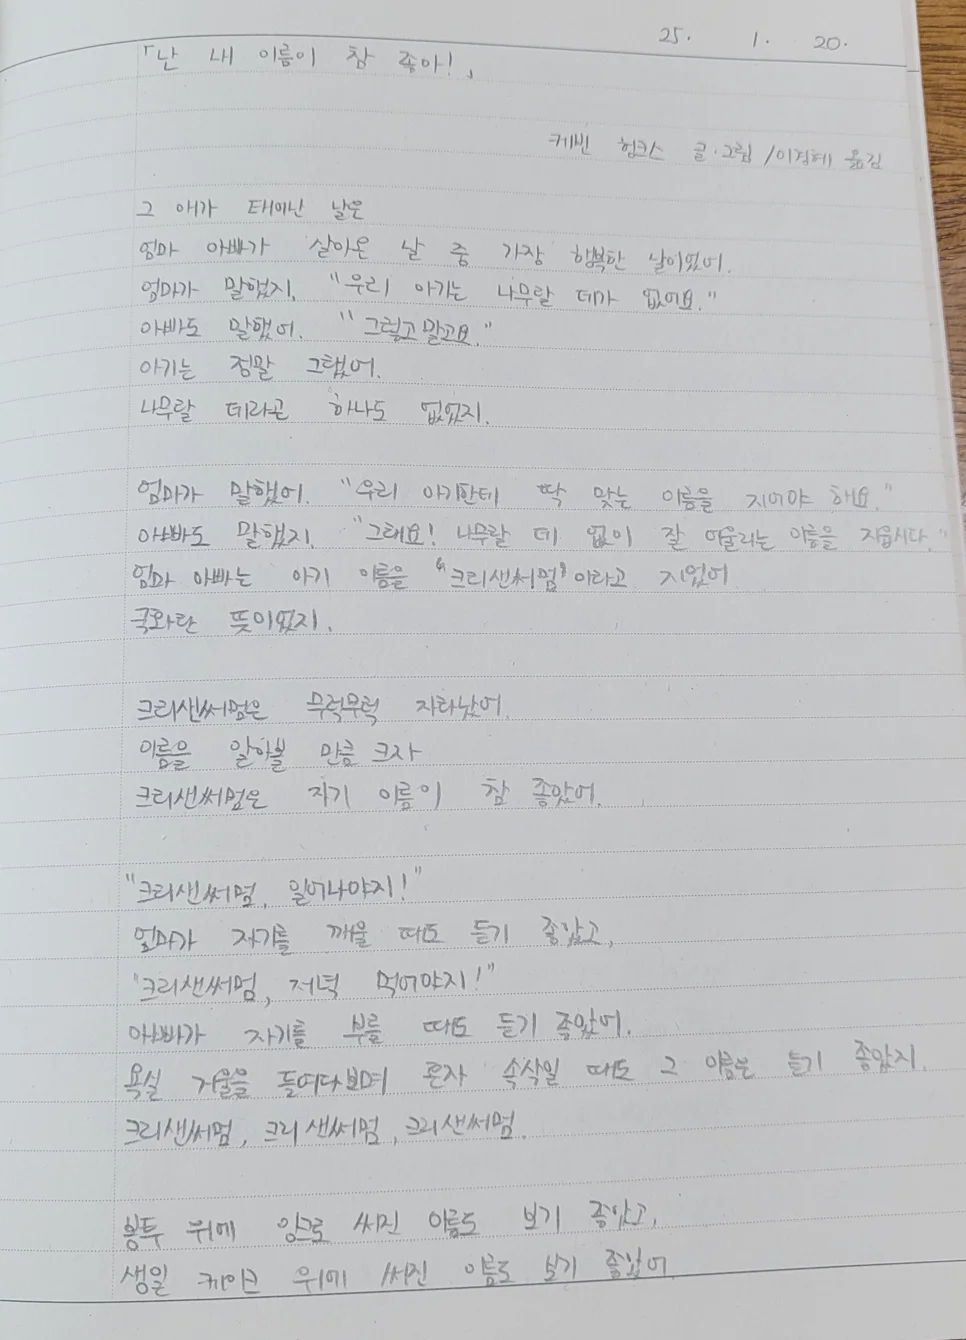 25. 1. 20.
「난 내 이름이 참 좋아!」
케빈 헹크스 글·그림 / 이경혜 옮김
그 애가 태어난 날은
엄마 아빠가 살아온 날 중 가장 행복한 날이었어.
엄마가 말했지. "우리 아기는 나무랄 데가 없어요."
아빠도 말했어. "그렇고말고요."
아기는 정말 그랬어.
나무랄 데라곤 하나도 없었지.
엄마가 말했어. "우리 아기한테 딱 맞는 이름을 지어야 해요."
아빠도 말했지. "그래요! 나무랄 데 없이 잘 어울리는 이름을 지읍시다."
엄마 아빠는 아기 이름을 "크리샌써멈"이라고 지었어
국화란 뜻이었지.
크리샌써멈은 무럭무럭 자라났어.
이름을 알아볼 만큼 크자
크리샌써멈은 자기 이름이 참 좋았어.
"크리샌써멈, 일어나야지!"
엄마가 자기를 깨울 때도 듣기 좋았고,
"크리샌써멈, 저녁 먹어야지!"
아빠가 자기를 부를 때도 듣기 좋았어.
욕실 거울을 들여다보며 혼자 속삭일 때도 그 이름은 듣기 좋았지.
크리샌써멈, 크리샌써멈, 크리샌써멈.
봉투 위에 잉크로 씌진 이름도 보기 좋았고,
생일 케이크 위에 씌진 이름도 보기 좋았어.